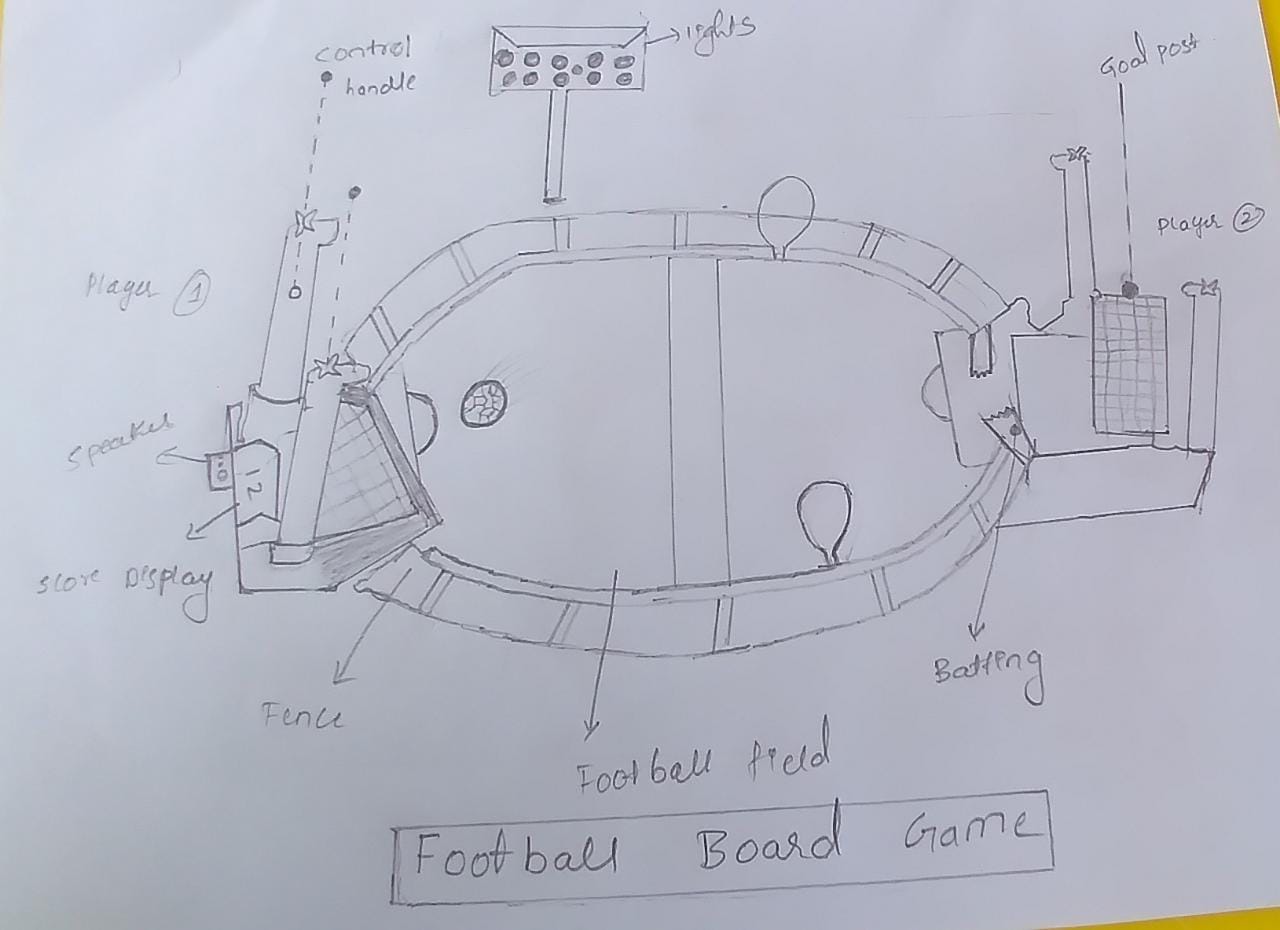 control
handle
lights
Goal post
Player 2
Player 1
Speaker
12
Score Display
Fence
Batting
Football field
Football Board Game